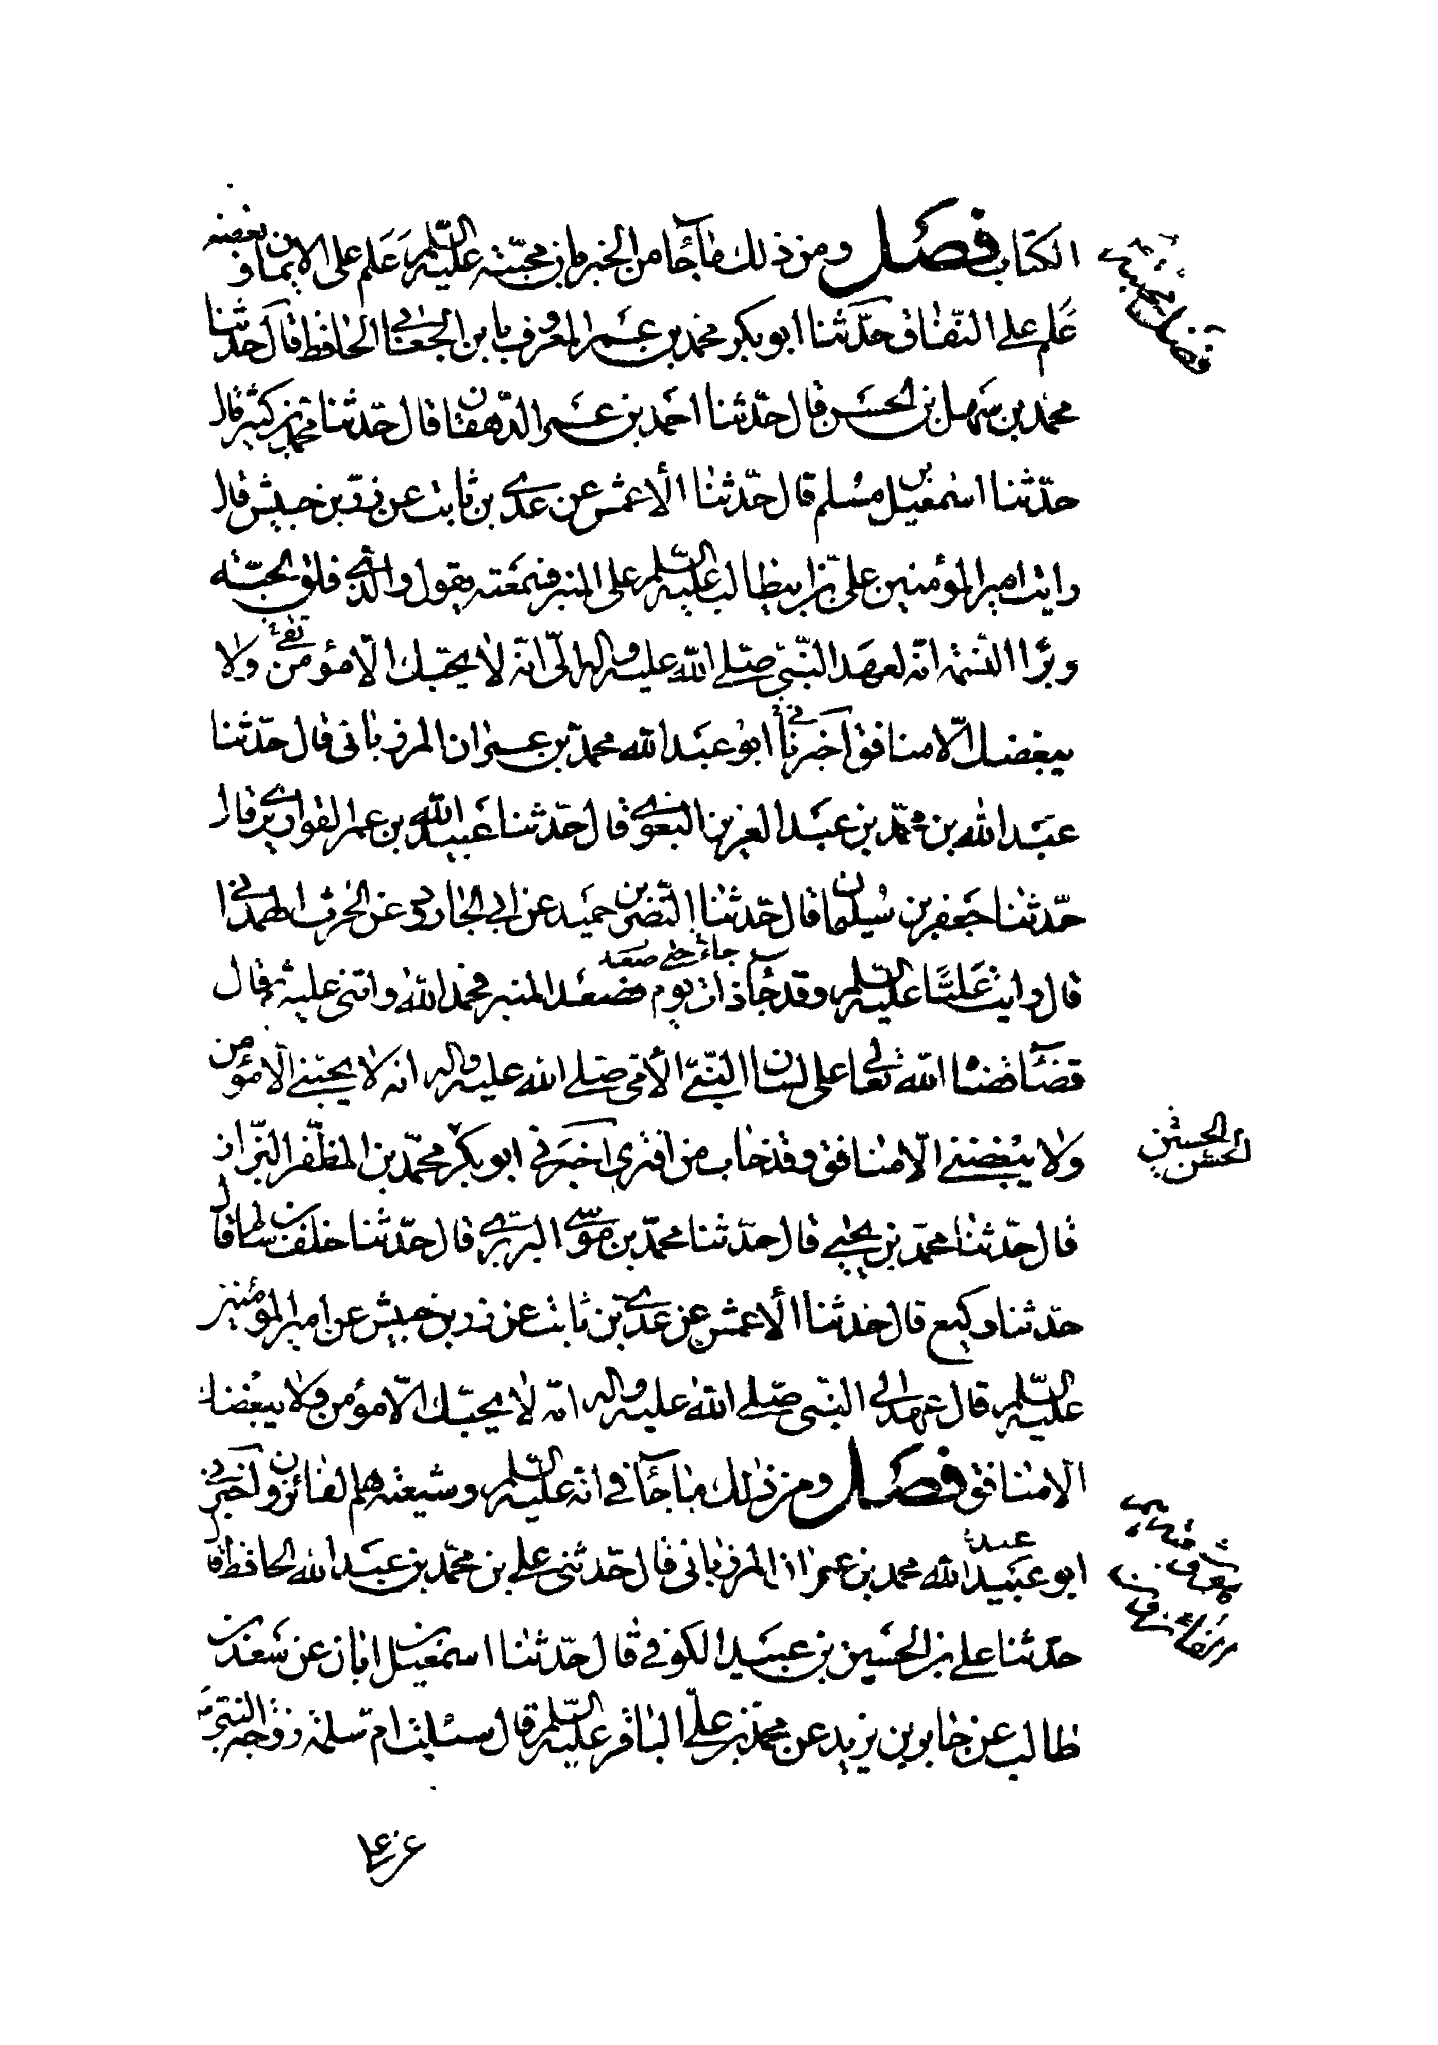 الكتاب فصل ومن ذلك ما جآء من الخبر بان محبّته عليه السّلم عَلَم على الايمان وبغضه
عَلم على النّفاق حدّثنا ابو بكر محمد بن عمر المعروف بابن الجعابي الحافظ قال حدّثنا
محمد بن سهل بن الحسن قال حدّثنا احمد بن عمر الدّهقان قال حدّثنا محمد بن كثير قال
حدّثنا اسمعيل بن مسلم قال حدّثنا الأعمش عن عدي بن ثابت عن زرّ بن حبيش قال
رايت امير المؤمنين علي بن ابيطالب عليه السّلم على المنبر فسمعته يقول والّذي فلق الحبّه
وبرَا النّسمة انّه لعهد النّبيّ صلى اللّه عليه واله الىّ انّه لا يحبّك الّا مؤمن تقي ولا
يبغضك الّا منافق اخبرني نا ابو عبد اللّه محمد بن عمران المرزباني قال حدّثنا
عبد اللّه بن محمّد بن عبد العزيز البغوي قال حدّثنا عبيد اللّه بن عمر القواريري قال
حدّثنا جعفر بن سليمان قال حدّثنا النّضر بن حميد عن ابي الجارود عن الحرث الهمداني
جاء حتى صعد
قال رايت عليّا عليه السّلم وقد جآء ذات يوم فصعد المنبر فحمد اللّه واثنى عليه ثم قال
قضآء قضاه اللّه تعالى على لسان النّبيّ الأمّي صلى اللّه عليه واله انه لا يحبّني الّا مؤمن
ولا يبغضني الّا منافق وقد خاب من افترى اخبرني ابو بكر محمّد بن المظفّر البزّاز
الحسين
الحسن
قال حدّثنا محمّد بن يحيى قال حدّثنا محمّد بن موسى البربري قال حدّثنا خلف بن سالم قال
حدّثنا وكيع قال حدثنا الأعمش عن عدي بن ثابت عن زر بن حبيش عن امير المؤمنين
عليه السّلم قال عهد الي النّبي صلى اللّه عليه واله انّه لا يحبّك الّا مؤمن ولا يبغضك
الا منافق فصل ومن ذلك ما جآء في انّه عليه السّلم وشيعته هم الفائزون اخبرني
عبد
ابو عبيد اللّه محمد بن عمران المرزباني قال حدّثني علي بن محمّد بن عبد اللّه الحافظ قا
حدّثنا علي بن الحسين بن عبيد الكوفي قال حدّثنا اسمعيل بن ابان عن سعد بن
طالب عن جابر بن يزيد عن محمّد بن علي الباقر عليه السّلم قال سئلت ام سلمة زوجه النبي